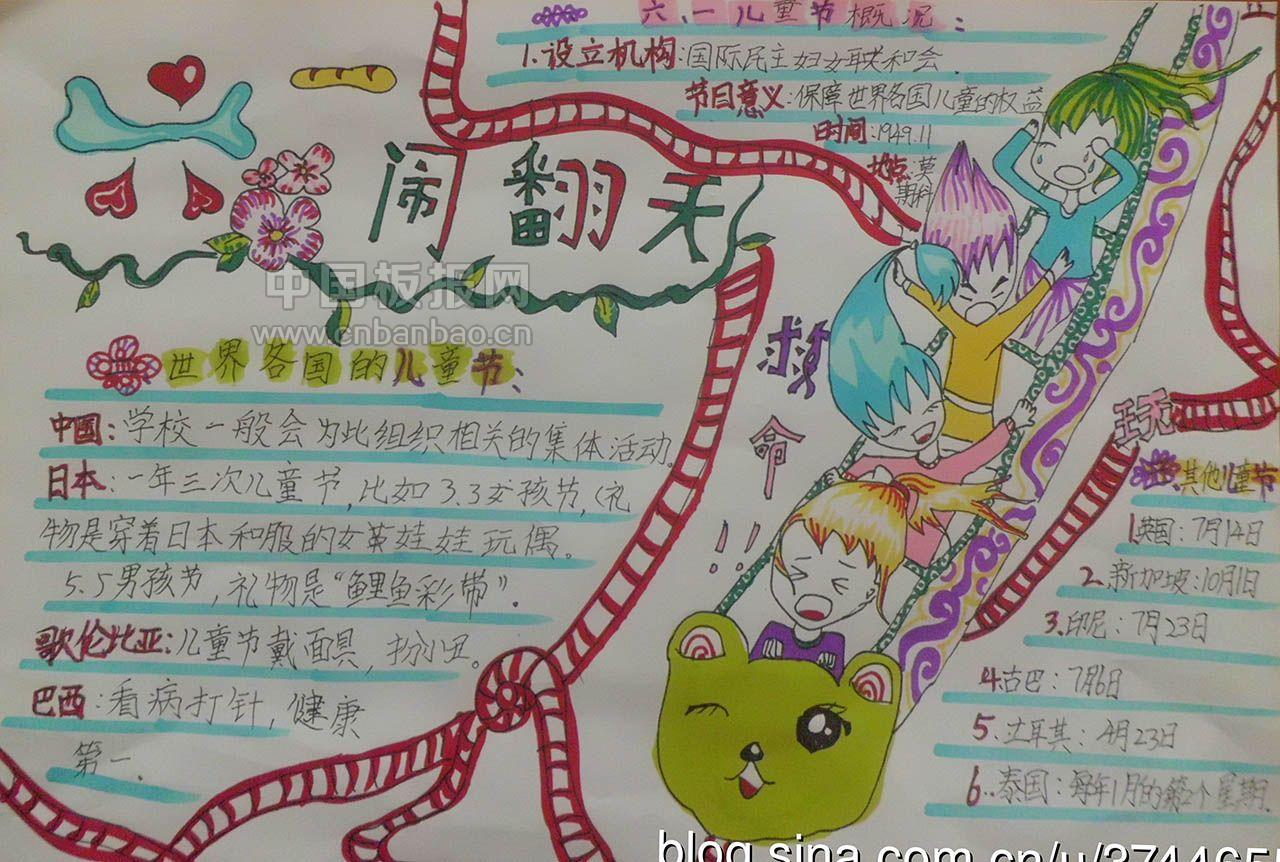 六一 闹翻天
中国板报网
www.cnbanbao.cn
世界各国的儿童节:
中国:学校一般会为此组织相关的集体活动.
日本:一年三次儿童节,比如3.3女孩节,(礼
物是穿着日本和服的女英娃娃玩偶。
5.5男孩节,礼物是“鲤鱼彩带”.
歌伦比亚:儿童节戴面具,扮小丑。
巴西:看病打针,健康
第一.
六.一儿童节概况:
1.设立机构:国际民主妇女联和会.
节日意义:保障世界各国儿童的权益
时间:1949.11
地点:莫
斯科
救
命
!!
玩
其他儿童节
1英国:7月14日
2.新加坡:10月1日
3.印尼:7月23日
4.古巴:7月6日
5.土耳其:4月23日
6..泰国:每年1月的第2个星期.
blog.sina.com.cn/u/3744655